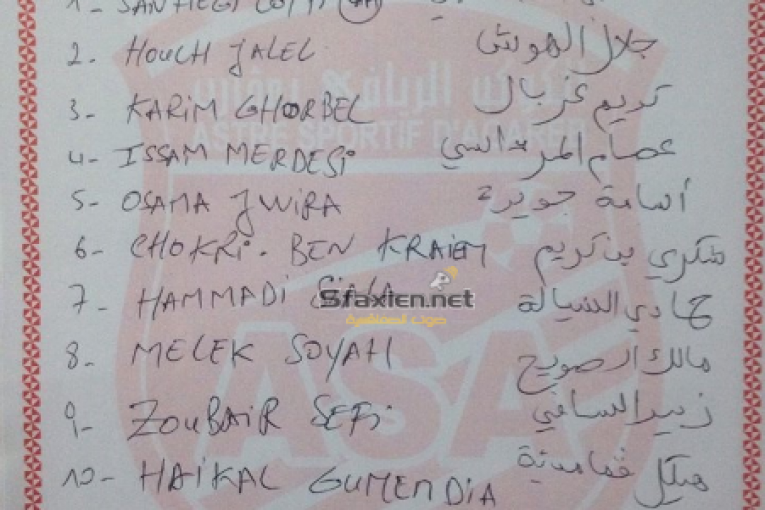 2. HOUCH JALEL جلال الهوش
3- KARIM GHORBEL كريم غربال
ASTRE SPORTIF
4- ISSAM MERDESi عصام المرداسي
5- OSAMA JWIRA أسامة جويرة
6- CHOKRi. BEN KRAIEM شكري بن كريم
7- HAMMADi SIALA حمادي السيالة
Sfaxien.net
8- MELEK SOYAH مالك الصويح
9- ZOUBAIR SEFi زبير السافي
ASA
10- HAIKAL GUMENDIA هيكل قمامدية